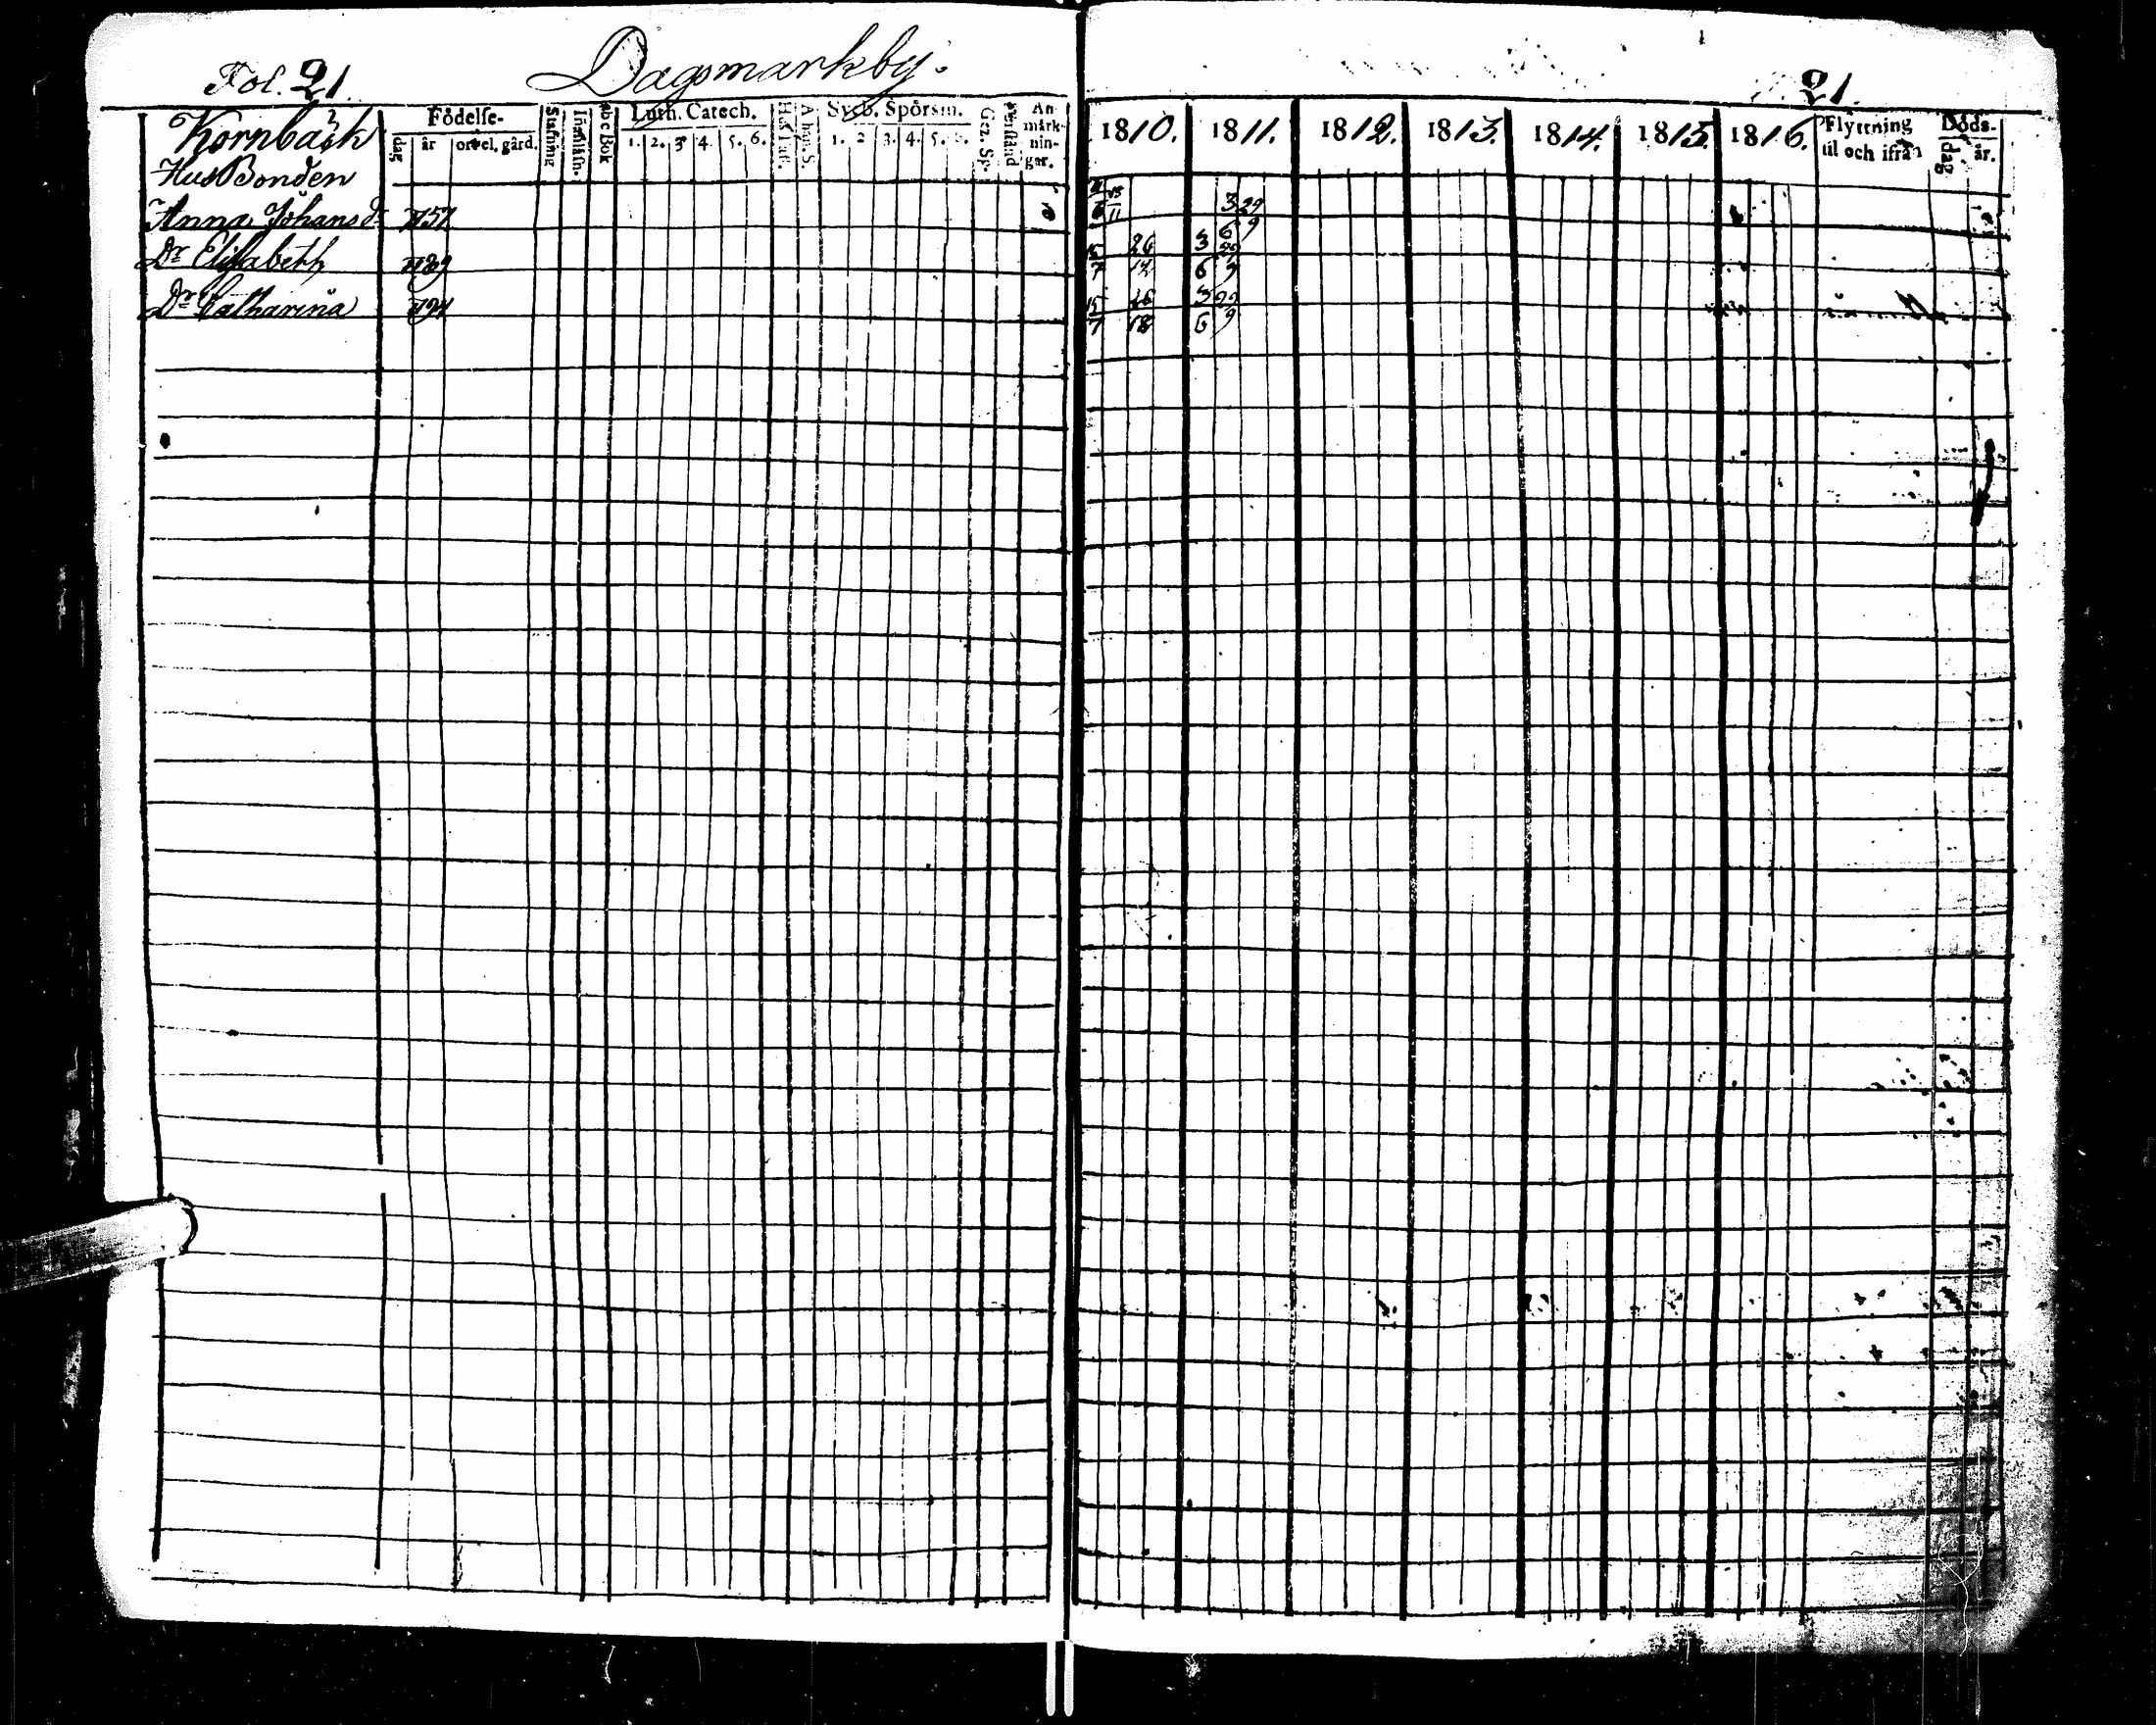 Fol. 21. Dagsmarkby. 21.
Kornback Födelse- Stafning Innanläsn. abc Bok Luth. Catech. Hus Taf. Sveb. Spörsm. Gez. Sp. Förstånd An märk- nin- gar. 1810. 1811. 1812. 1813. 1814. 1815. 1816. Flyttning til och ifrån Döds-
dag år ort el. gård. 1. 2. 3 4. 5. 6. 1. 2 3. 4. 5. dag år.
HusBonden
Anna Johans dr 1757 6 11 3 29
6 9
Dr Elisabeth 1789 15 26 3 29
7 14 6 9
Dr Catharina 1794 15 26 3 29
7 18 6 9